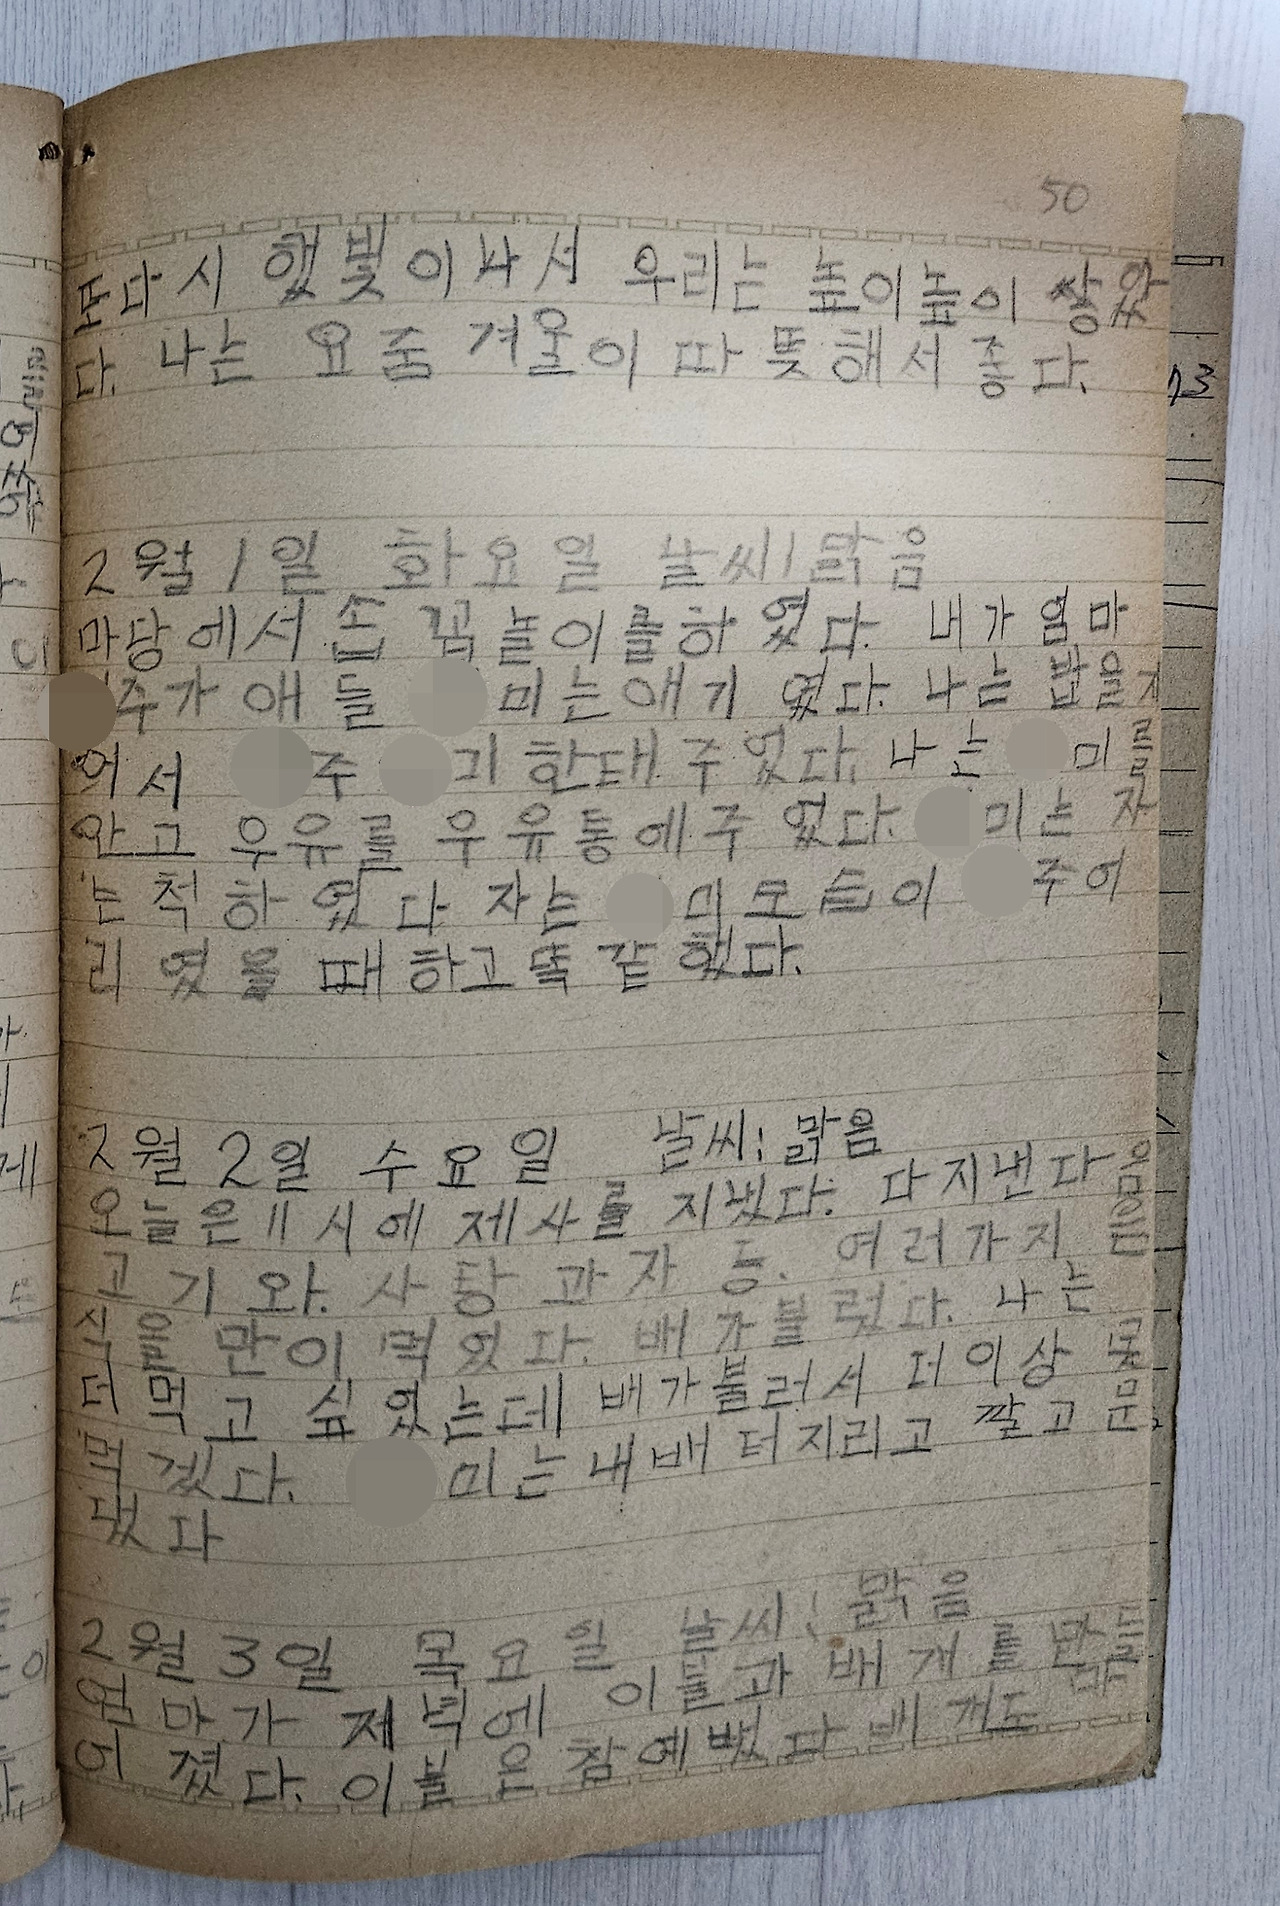 50
또다시 햇빛이나서 우리는 높이높이 쌓았
다. 나는 요줌 겨울이 따뜻해서 좋다.
2월 1일 화요일 날씨! 맑음
마당에서 솝꼽놀이를하였다. 내가 엄마
주가 애들 미는애기였다. 나는 밥을지
어서 주 미한태 주었다. 나는 미를
안고 우유를 우유통에주었다. 미는 자
는척하였다 자는 미모습이 주어
리였을때하고똑같했다.
2월 2일 수요일 날씨: 맑음
오늘은 11시에 제사를 지냈다. 다지낸다음
고기와. 사탕 과자 등. 여러가지 음
식을 만이 먹었다. 배가불렀다. 나는
더 먹고 싶었는데 배가불러서 더이상 못
먹겠다. 미는 내배터지리고 깔고문
댔다
2월 3일 목요일 날씨! 맑음
엄마가 저녁에 이불과 배개를 만들
어 졌다. 이불은 참예뻤다 배깨도